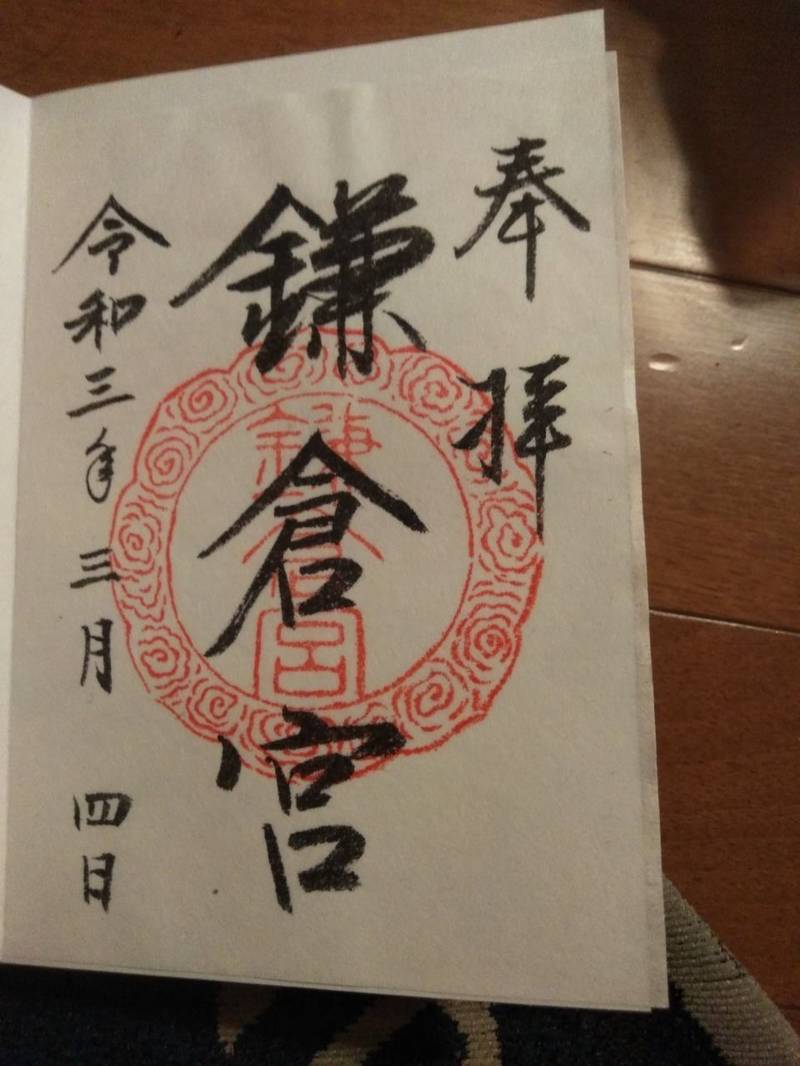 奉拝
鎌倉宮
鎌倉宮
令和三年三月四日